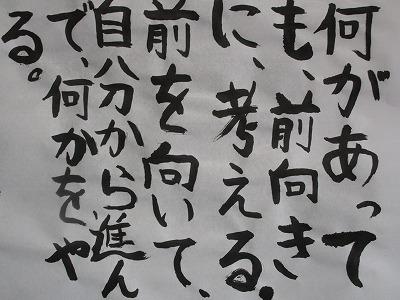 何があって
も、前向き
に、考える。
前を向いて、
自分から進ん
で、何かをや
る。